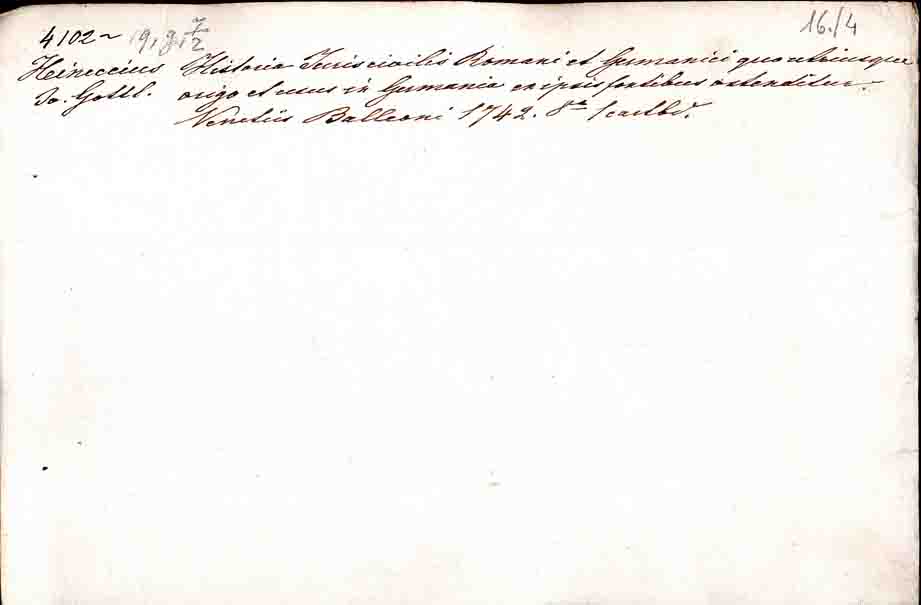 4102~ 19, g, 7/2 16./4
Heineccius Historia Juris civilis Romani et Germanici quo utriusque
Jo. Gottl. origo et usus in Germania ex ipsis fontibus ostenditur.
Venetiis Balleoni 1742. 8°